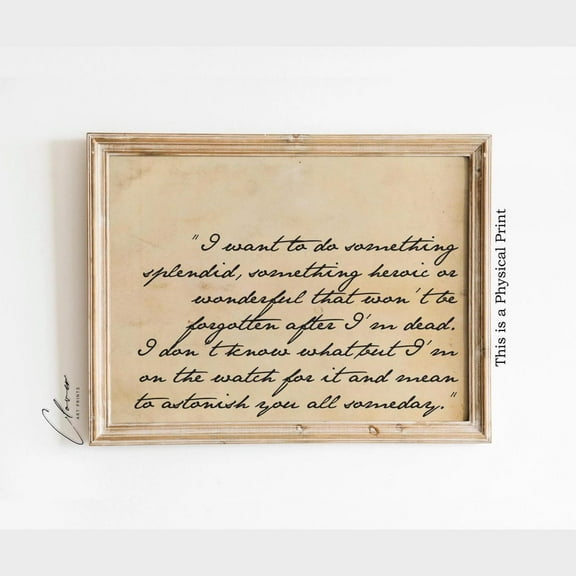 "I want to do something
splendid, something heroic or
wonderful that won't be
forgotten after I'm dead.
I don't know what but I'm
on the watch for it and mean
to astonish you all someday."
This is a Physical Print
Clover
ART PRINTS